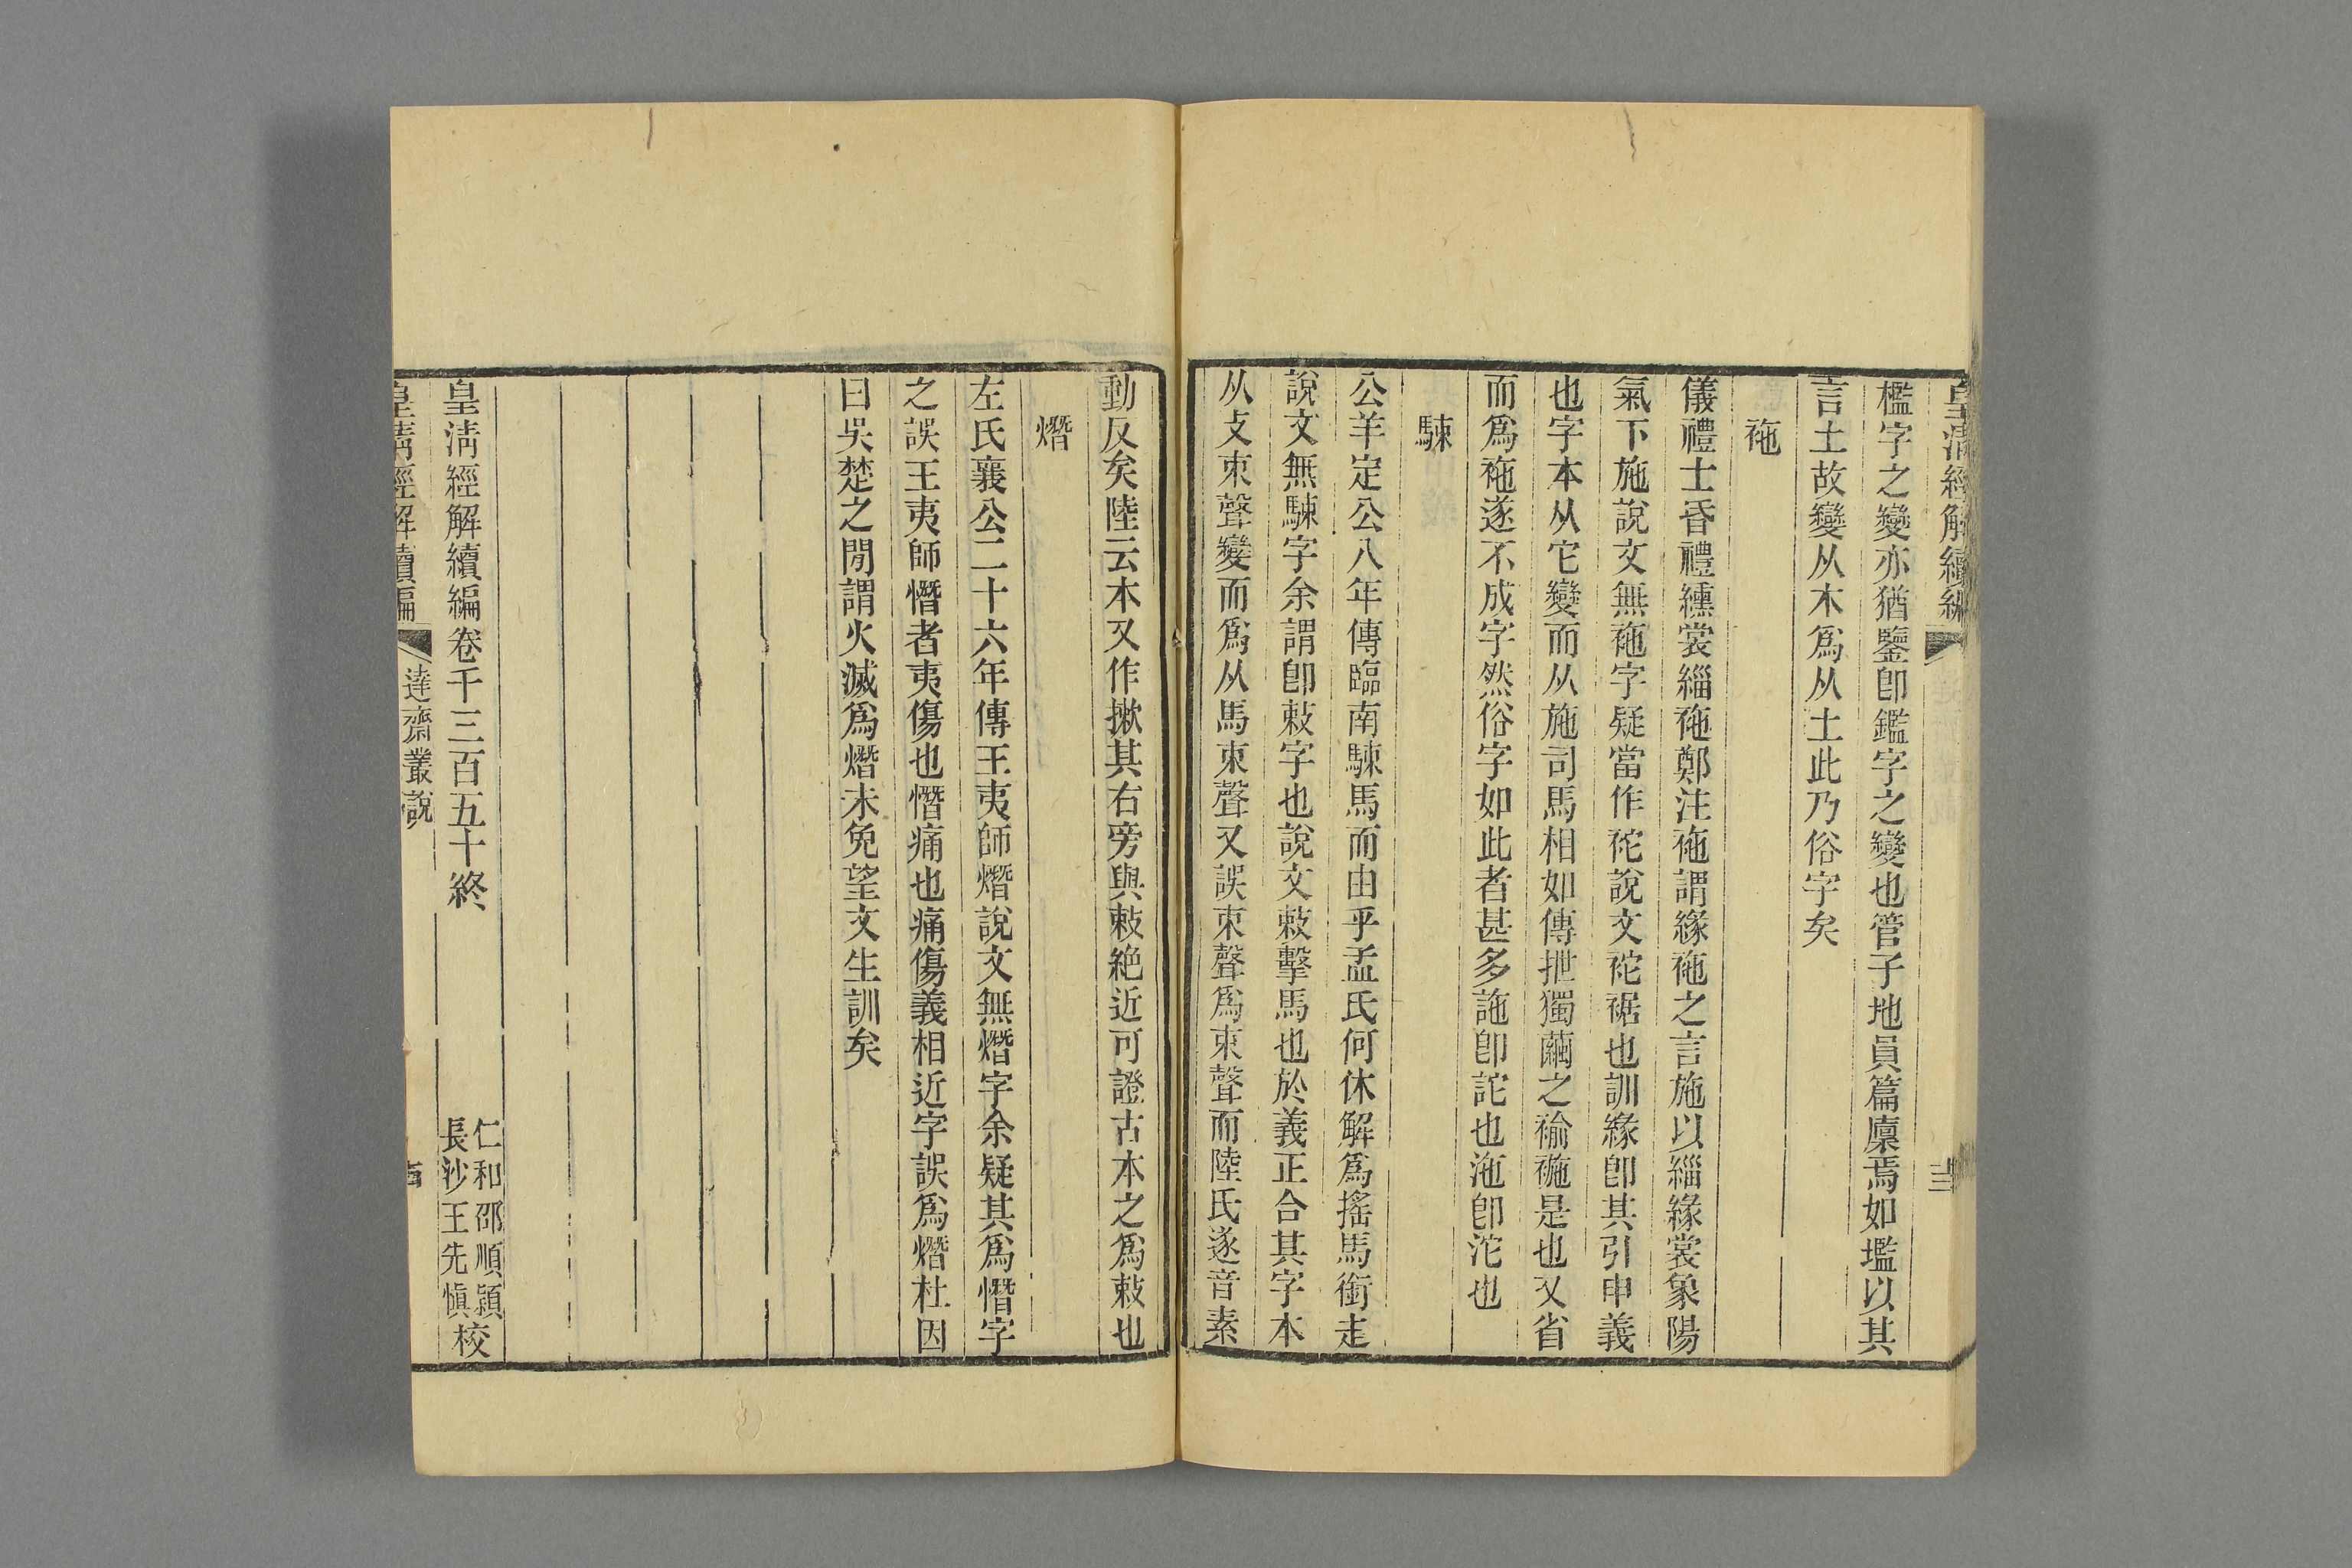 皇清經解續編
三
檻字之變亦猶鑒卽鑑字之變也管子地員篇廩焉如壏以其
言土故變从木爲从土此乃俗字矣
袘
儀禮士昏禮纁裳緇袘鄭注袘謂緣袘之言施以緇緣裳象陽
氣下施說文無袘字疑當作袉說文袉裾也訓緣卽其引申義
也字本从它變而从施司馬相如傳抴獨繭之褕䙾是也又省
而爲袘遂不成字然俗字如此者甚多詑卽詑也沲卽沱也
駷
公羊定公八年傳臨南駷馬而由乎孟氏何休解爲搖馬銜走
說文無駷字余謂卽敕字也說文敕擊馬也於義正合其字本
从攴朿聲變而爲从馬朿聲又誤朿聲爲束聲而陸氏遂音素
動反矣陸云本又作摗其右旁與敕絕近可證古本之爲敕也
熸
左氏襄公二十六年傳王夷師熸說文無熸字余疑其爲憯字
之誤王夷師憯者夷傷也憯痛也痛傷義相近字誤爲熸杜因
曰吳楚之閒謂火滅爲熸未免望文生訓矣
皇淸經解續編卷千三百五十終
仁和邵順穎
長沙王先愼
校
皇淸經解續編
達齋叢說